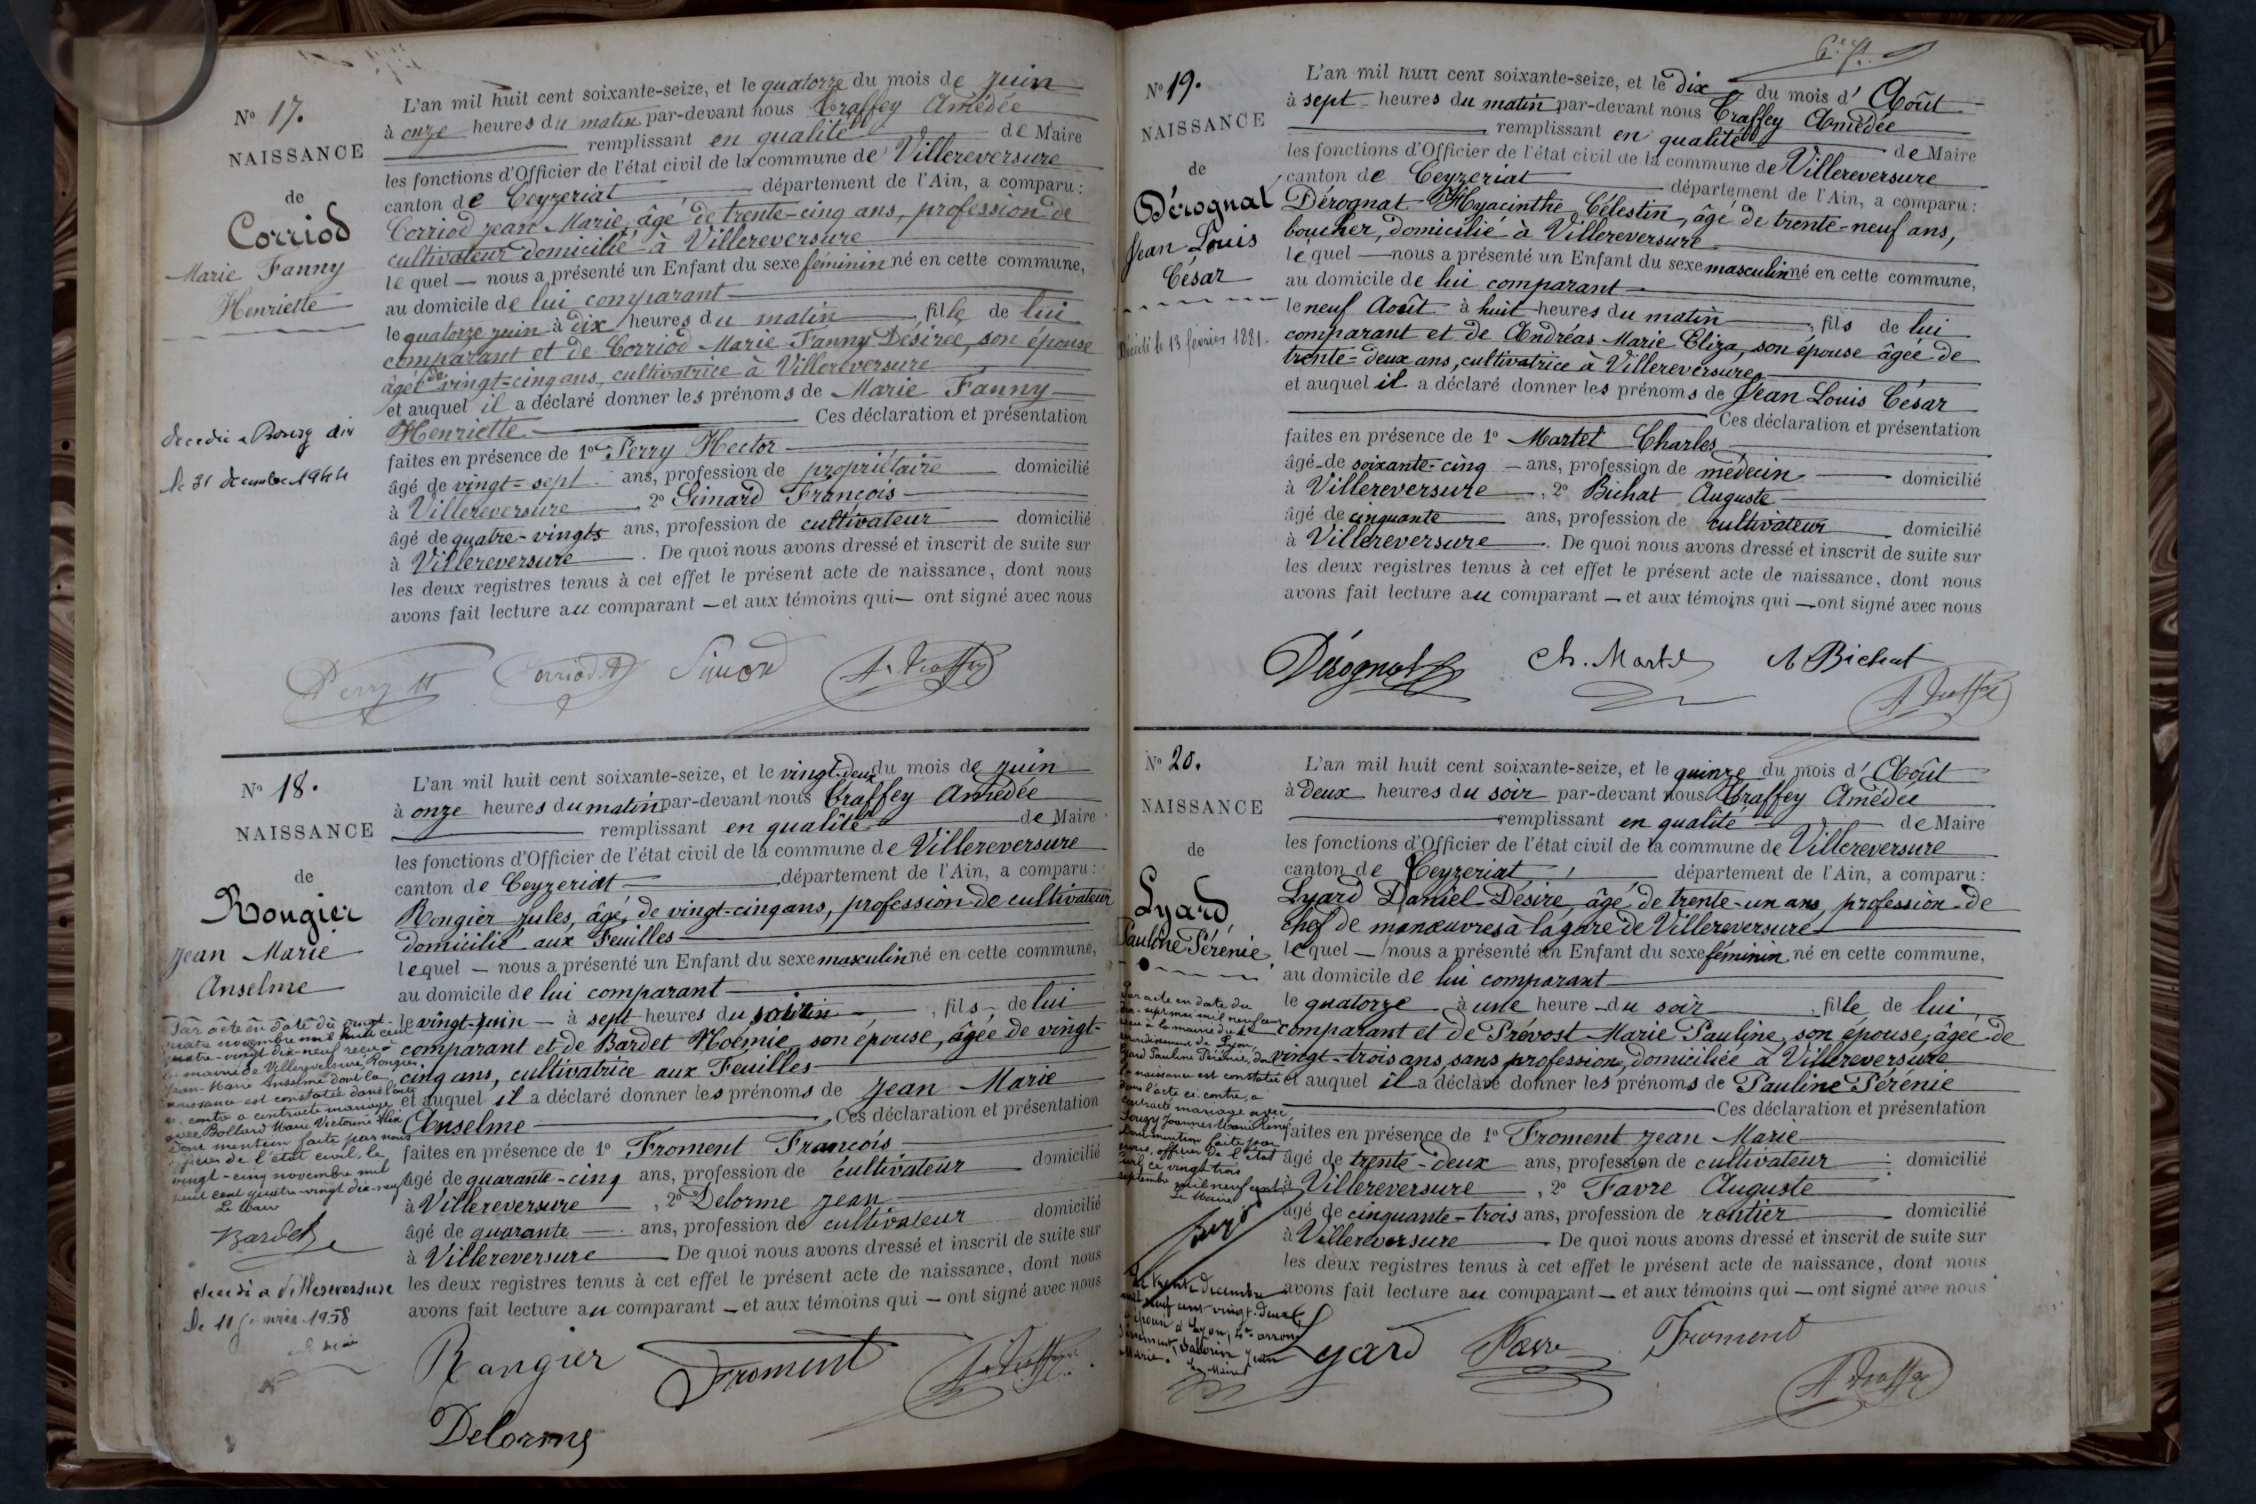 N° 17.
NAISSANCE
de
Corriod
Marie Fanny
Henriette
décédée à Bourg Ain
le 31 décembre 1944
L'an mil huit cent soixante-seize, et le quatorze du mois de juin
à onze heures du matin par-devant nous Traffey Amédée
remplissant en qualité de Maire
les fonctions d'Officier de l'état civil de la commune de Villereversure
canton de Ceyzeriat département de l'Ain, a comparu:
Corriod Jean Marie, âgé de trente-cinq ans, profession de
cultivateur domicilié à Villereversure
lequel nous a présenté un Enfant du sexe féminin né en cette commune,
au domicile de lui comparant
le quatorze juin à dix heures du matin, fille de lui
comparant et de Corriod Marie Fanny Désirée, son épouse
âgée de vingt-cinq ans, cultivatrice à Villereversure
et auquel il a déclaré donner les prénoms de Marie Fanny
Henriette Ces déclaration et présentation
faites en présence de 1° Perry Hector
âgé de vingt-sept ans, profession de propriétaire domicilié
à Villereversure, 2° François
âgé de quatre-vingts ans, profession de cultivateur domicilié
à Villereversure. De quoi nous avons dressé et inscrit de suite sur
les deux registres tenus à cet effet le présent acte de naissance, dont nous
avons fait lecture au comparant — et aux témoins qui — ont signé avec nous
Perry H Corriod A. Traffey
N° 18.
NAISSANCE
de
Rougier
Jean Marie
Anselme
Par acte en date du vingt-
quatre novembre mil huit cent
quatre-vingt-dix-neuf reçu à
la mairie de Villereversure, Rougier
Jean-Marie Anselme dont la
naissance est constatée dans l'acte
ci-contre a contracté mariage
avec Bollard Marie Victorine Alix
Dont mention faite par nous
officier de l'état civil, le
vingt-cinq novembre mil
huit cent quatre-vingt dix-neuf
Le Maire
Bardet
décédé à Villereversure
le 11 1958
L'an mil huit cent soixante-seize, et le vingt-deux du mois de juin
à onze heures du matin par-devant nous Traffey Amédée
remplissant en qualité de Maire
les fonctions d'Officier de l'état civil de la commune de Villereversure
canton de Ceyzeriat département de l'Ain, a comparu:
Rougier Jules, âgé de vingt-cinq ans, profession de cultivateur
domicilié aux Feuilles
lequel — nous a présenté un Enfant du sexe masculin né en cette commune,
au domicile de lui comparant
le vingt-juin — à sept heures du, fils de lui
comparant et de Bardet Noémie, son épouse, âgée de vingt-
cinq ans, cultivatrice aux Feuilles
et auquel il a déclaré donner les prénoms de Jean Marie
Anselme Ces déclaration et présentation
faites en présence de 1° Froment François
âgé de quarante-cinq ans, profession de cultivateur domicilié
à Villereversure, 2° Delorme Jean
âgé de quarante ans, profession de cultivateur domicilié
à Villereversure De quoi nous avons dressé et inscrit de suite sur
les deux registres tenus à cet effet le présent acte de naissance, dont nous
avons fait lecture au comparant — et aux témoins qui — ont signé avec nous
Rougier Froment A. Traffey
Delorme
N° 19.
NAISSANCE
de
Dérognat
Jean Louis
César
Décédé le 13 février 1881.
L'an mil huit cent soixante-seize, et le dix du mois d'Août
à sept heures du matin par-devant nous Traffey Amédée
remplissant en qualité de Maire
les fonctions d'Officier de l'état civil de la commune de Villereversure
canton de Ceyzeriat département de l'Ain, a comparu:
Dérognat Hyacinthe Célestin, âgé de trente-neuf ans,
boucher, domicilié à Villereversure
lequel — nous a présenté un Enfant du sexe masculin né en cette commune,
au domicile de lui comparant
le neuf Août à huit heures du matin, fils de lui
comparant et de Andréas Marie Eliza, son épouse âgée de
trente-deux ans, cultivatrice à Villereversure
et auquel il a déclaré donner les prénoms de Jean Louis César
Ces déclaration et présentation
faites en présence de 1° Martel Charles
âgé de soixante-cinq ans, profession de médecin domicilié
à Villereversure, 2° Bichat Auguste
âgé de cinquante ans, profession de cultivateur domicilié
à Villereversure. De quoi nous avons dressé et inscrit de suite sur
les deux registres tenus à cet effet le présent acte de naissance, dont nous
avons fait lecture au comparant — et aux témoins qui — ont signé avec nous
Dérognat Ch. Martel A Bichat
A Traffey
N° 20.
NAISSANCE
de
Lyard
Pauline Pérénie
Par acte en date du
mil neuf cent
à la mairie du
arrondissement de Lyon
Lyard Pauline Pérénie, dont
la naissance est constatée
dans l'acte ci-contre, a
contracté mariage avec
Joannes Marie Rémy
Dont mention faite par
nous, officier de l'état
civil ce vingt-trois
septembre mil neuf cent
Le Maire
Le trente décembre
mil neuf cent vingt-deux
à Lyon, arron-
dissement, Jean
Marie.
Le Maire
L'an mil huit cent soixante-seize, et le quinze du mois d'Août
à deux heures du soir par-devant nous Traffey Amédée
remplissant en qualité de Maire
les fonctions d'Officier de l'état civil de la commune de Villereversure
canton de Ceyzeriat département de l'Ain, a comparu:
Lyard Daniel Désiré, âgé de trente-un ans, profession de
chef de manœuvres à la gare de Villereversure
lequel — nous a présenté un Enfant du sexe féminin né en cette commune,
au domicile de lui comparant
le quatorze à une heure du soir fille de lui
comparant et de Prévost Marie Pauline, son épouse, âgée de
vingt-trois ans, sans profession, domiciliée à Villereversure
et auquel il a déclaré donner les prénoms de Pauline Pérénie
Ces déclaration et présentation
faites en présence de 1° Froment Jean Marie
âgé de trente-deux ans, profession de cultivateur domicilié
à Villereversure, 2° Favre Auguste
âgé de cinquante-trois ans, profession de rentier domicilié
à Villereversure De quoi nous avons dressé et inscrit de suite sur
les deux registres tenus à cet effet le présent acte de naissance, dont nous
avons fait lecture au comparant — et aux témoins qui — ont signé avec nous
Lyard Favre Froment
A Traffey